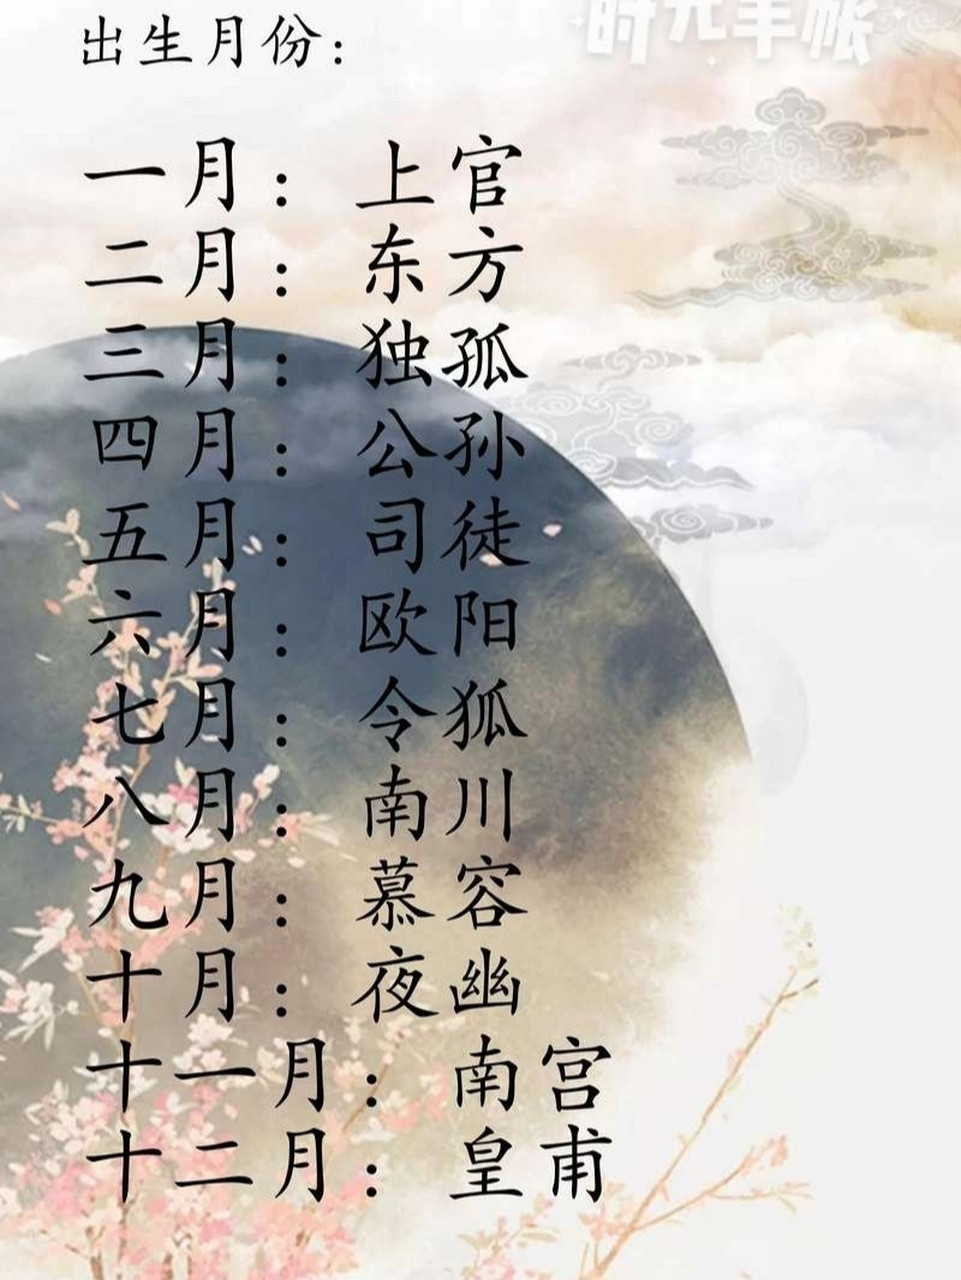 时光手帐
出生月份：
一月：上官
二月：东方
三月：独孤
四月：公孙
五月：司徒
六月：欧阳
七月：令狐
八月：南川
九月：慕容
十月：夜幽
十一月：南宫
十二月：皇甫